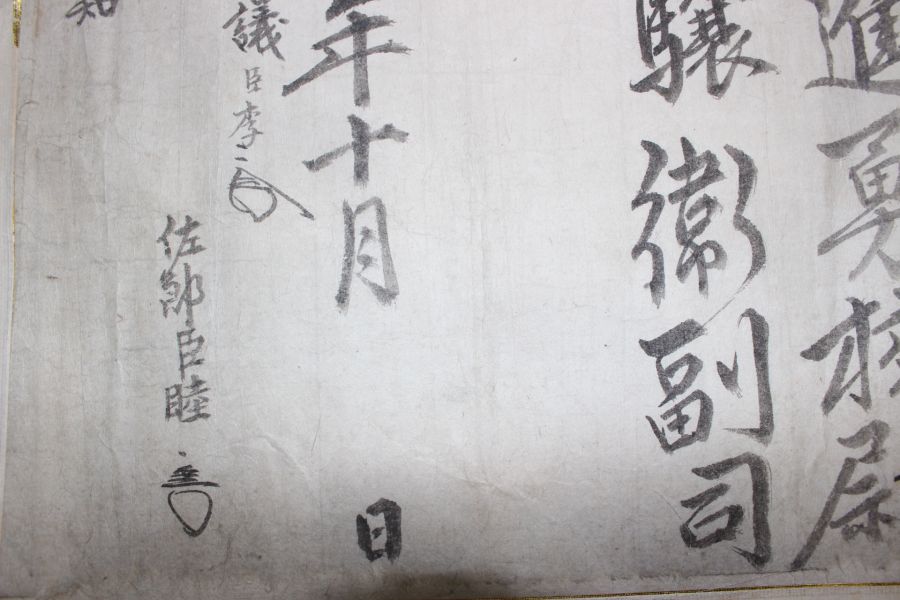 進勇校尉
驤衛副司
年十月 日
議臣李
佐郎臣睦
知